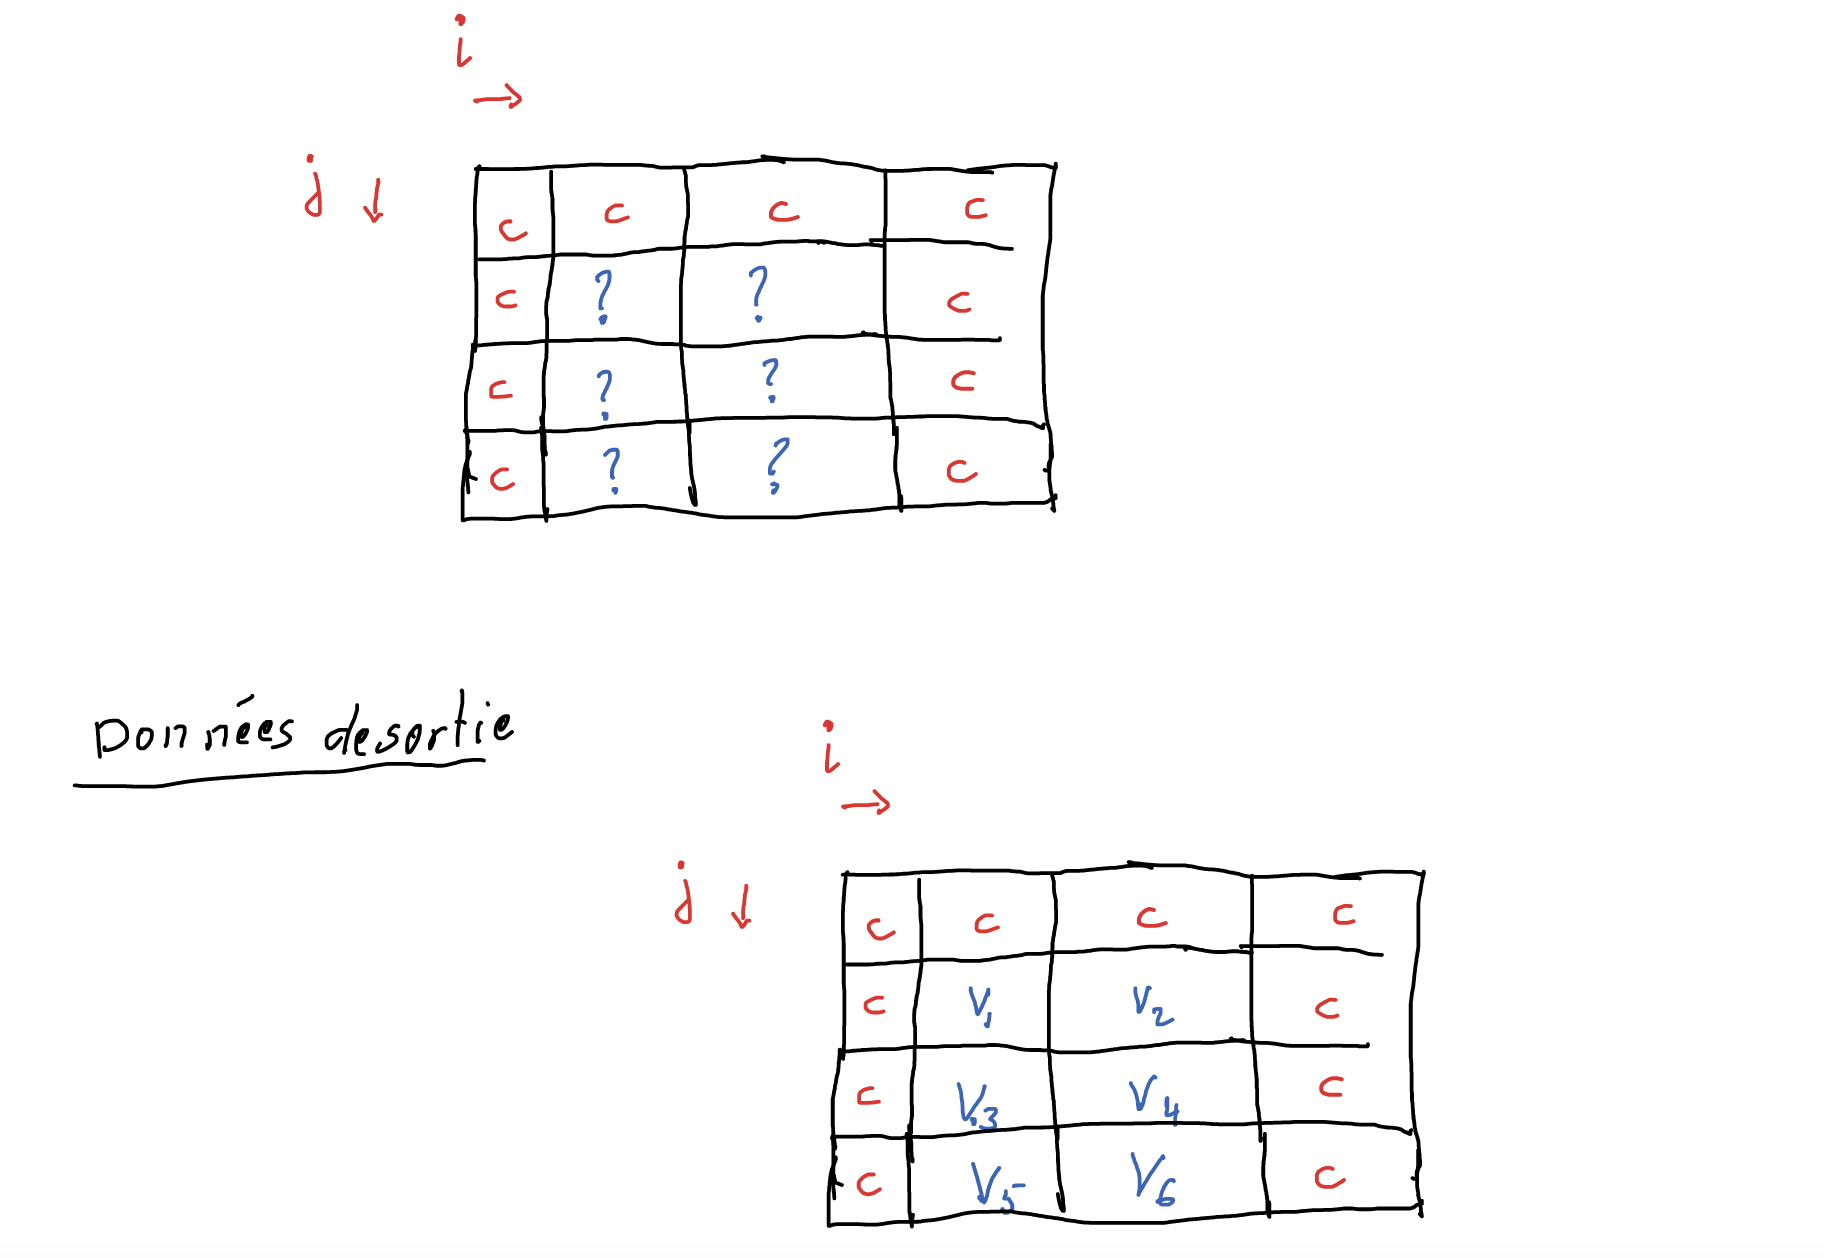 i
→
j ↓
c c c c
c ? ? c
c ? ? c
c ? ? c
Données de sortie
i
→
j ↓
c c c c
c V1 V2 c
c V3 V4 c
c V5 V6 c